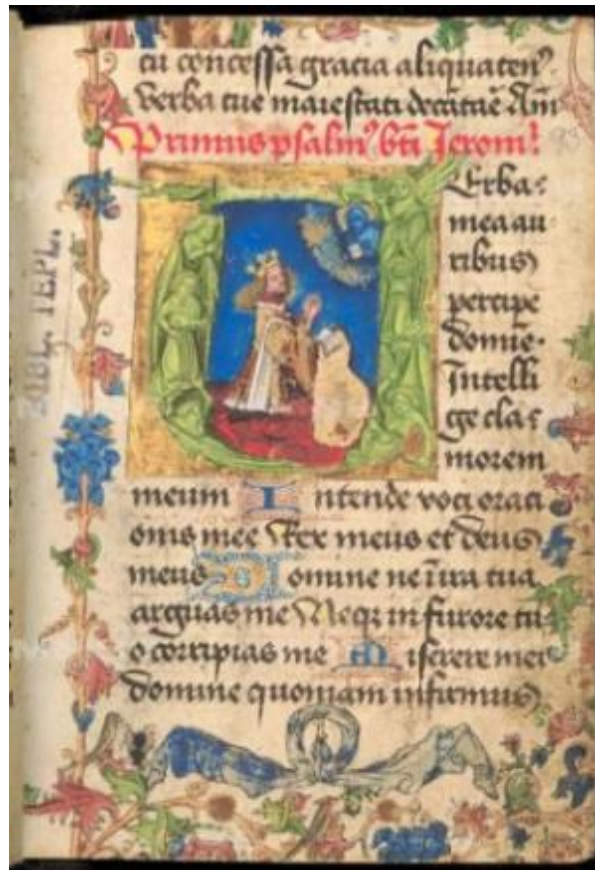 tu concessa gracia aliquaten⁹
verba tue maiestati decātāe Am̄
Primus psalm⁹ bt̄i Jeroni
93
Verba
mea au
ribus
percipe
domīe
Intelli
ge cla
morem
meum Intende voci orati
onis mee Rex meus et deus
meus Domine ne ī ira tua
arguas me Neqz in furore tu
o corripias me Miserere mei
domine quoniam infirmus
BIBL. TEPL.